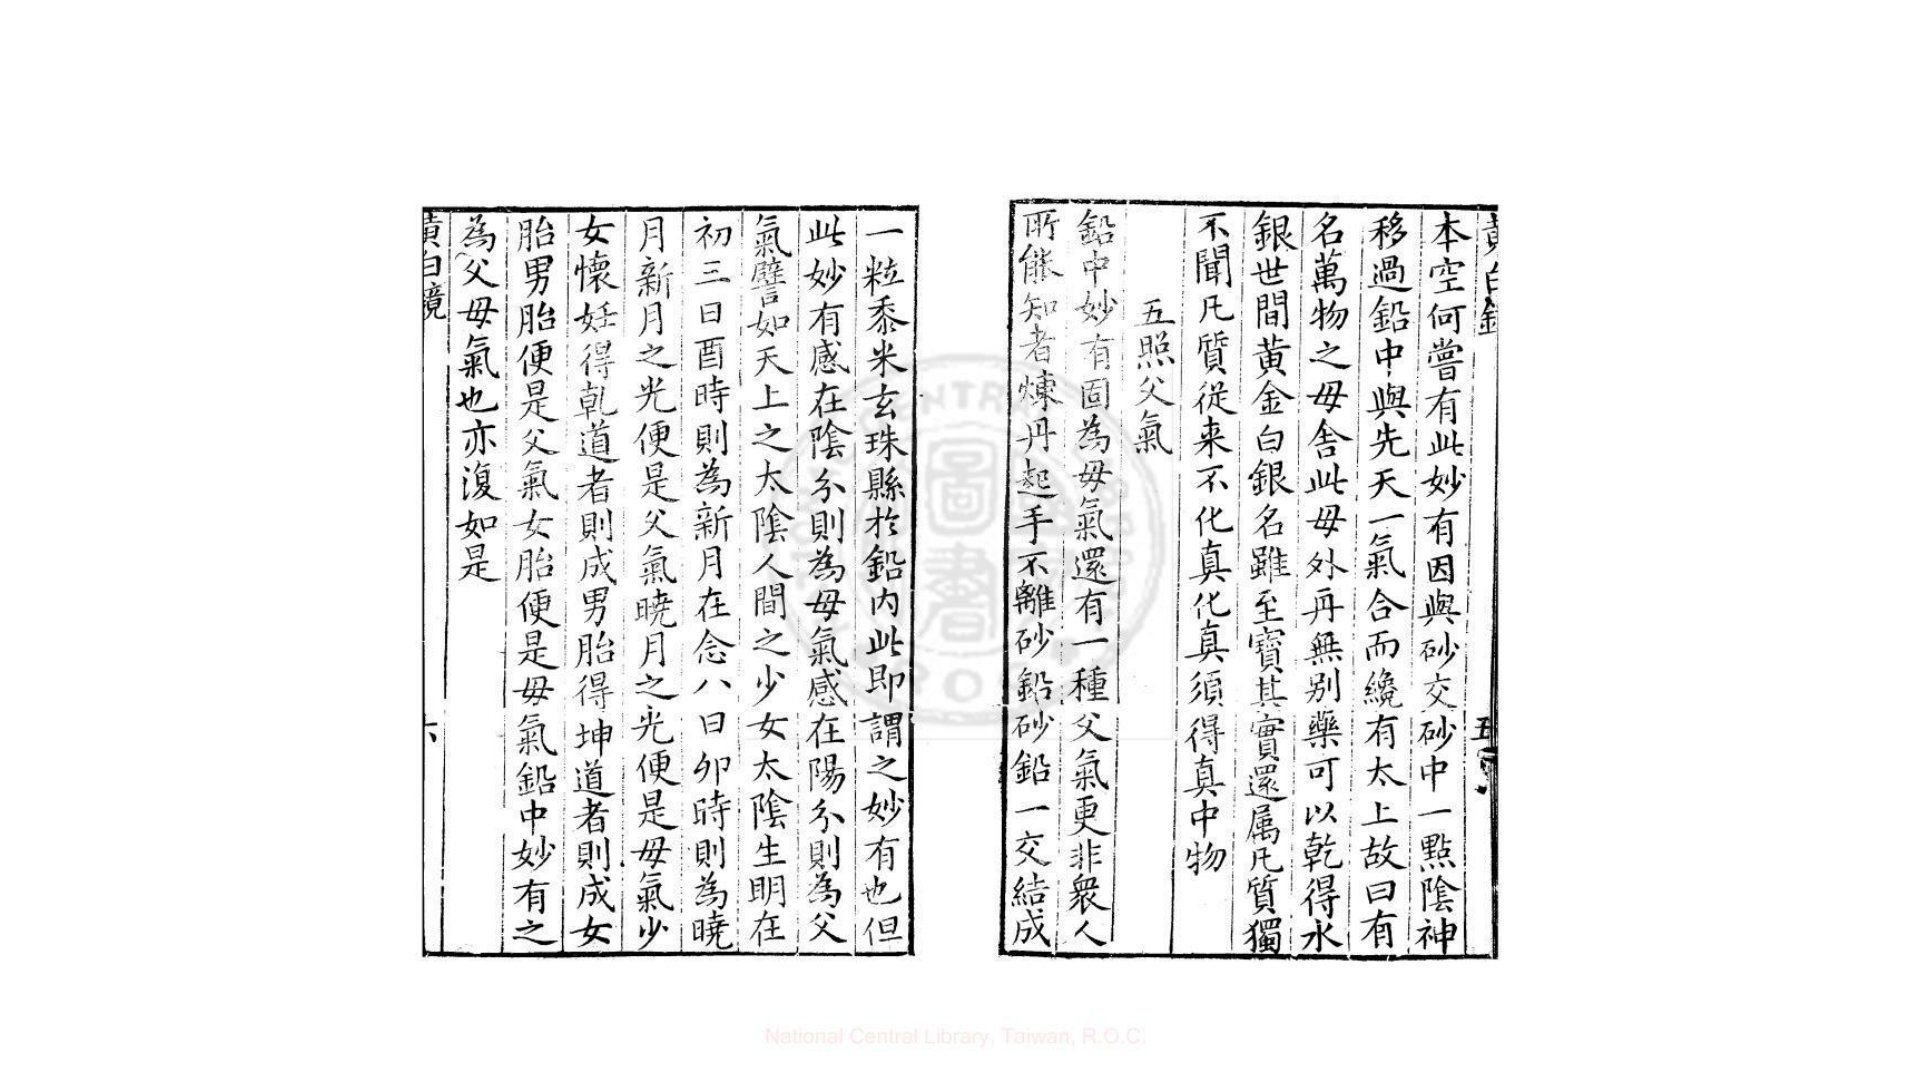 黃白鏡
五
本空何嘗有此妙有因與砂交砂中一點陰神
移過鉛中與先天一氣合而纔有太上故曰有
名萬物之母舍此母外再無别藥可以乾得水
銀世間黄金白銀名雖至寶其實還属凡質獨
不聞凡質從来不化真化真須得真中物
五照父氣
鉛中妙有固為母氣還有一種父氣更非衆人
所能知者煉丹起手不離砂鉛砂鉛一交結成
一粒黍米玄珠縣於鉛内此即謂之妙有也但
此妙有感在陰分則為母氣感在陽分則為父
氣譬如天上之太陰人間之少女太陰生明在
初三日酉時則為新月在念八日卯時則為曉
月新月之光便是父氣曉月之光便是母氣少
女懷妊得乾道者則成男胎得坤道者則成女
胎男胎便是父氣女胎便是母氣鉛中妙有之
為父母氣也亦復如是
黄白鏡
六
National Central Library, Taiwan, R.O.C.